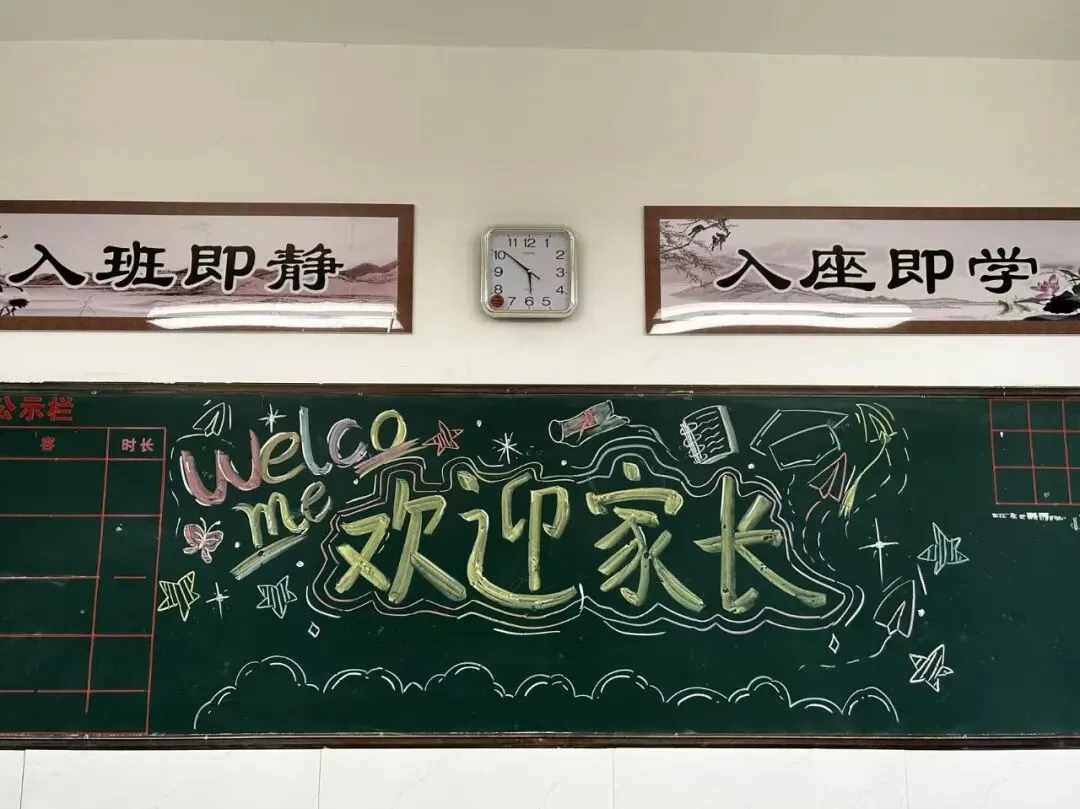 入班即静
入座即学
11 12 1
10 2
9 3
8 4
7 6 5
公示栏
容
时长
welco
me
欢迎家长